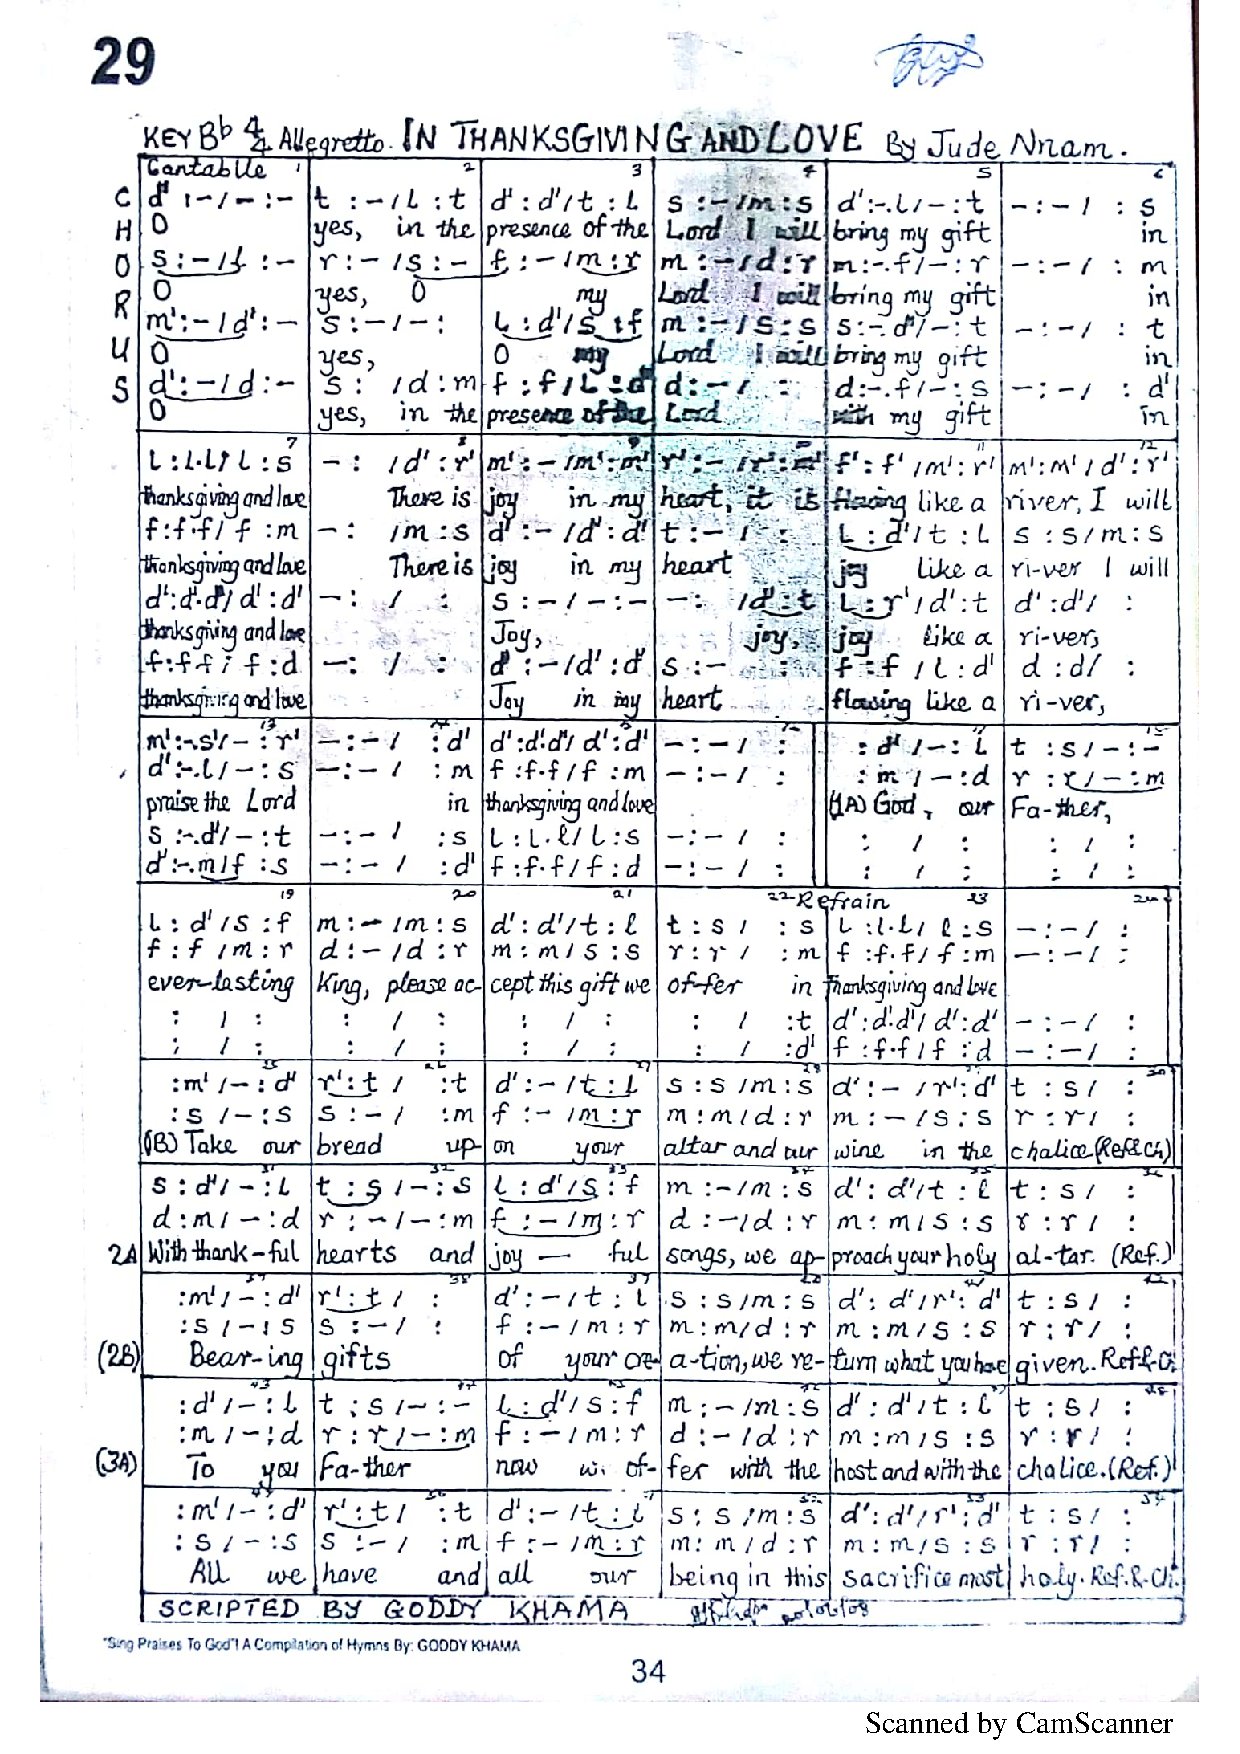 29
KEY Bb 4/4 Allegretto. IN THANKSGIVING AND LOVE By Jude Nnam.
CHORUS
Cantabile 1 2 3 4 5 6
d' :-/-:- | t :-/l : t | d' : d'/t : l | s :-/m : s | d' :-.l/-: t | -:-/ : s
O | yes, in the | presence of the | Lord I will | bring my gift | in
s :-/l :- | r :-/s :- | f :-/m : r | m :-/d : r | m :-.f/-: r | -:-/ : m
O | yes, O | my | Lord I will | bring my gift | in
m' :-/d' :- | s :-/-: | l : d'/s : f | m :-/s : s | s :-.d'/-: t | -:-/ : t
O | yes, | O my | Lord I will | bring my gift | in
d' :-/d :- | s : /d : m | f : f/l : d' | d :-/ : | d :-.f/-: s | -:-/ : d'
O | yes, in the | presence of the | Lord | with my gift | in
7 8 9 10 11 12
l : l.l/l : s | -: /d' : r' | m' :-/m' : m' | r' :-/r' : | f' : f'/m' : r' | m' : m'/d' : r'
thanksgiving and love | There is | joy in my | heart, it is | flowing like a | river, I will
f : f.f/f : m | -: /m : s | d' :-/d' : d' | t :-/ : | l : d'/t : l | s : s/m : s
thanksgiving and love | There is | joy in my | heart | joy like a | ri-ver I will
d' : d'.d'/d' : d' | -: / : | s :-/-:- | -: /d' : t | l : r'/d' : t | d' : d'/ :
thanksgiving and love | Joy, | joy, | joy like a | ri-ver,
f : f.f/f : d | -: / : | d' :-/d' : d' | s :- | f : f/l : d' | d : d/ :
thanksgiving and love | Joy in my | heart | flowing like a | ri-ver,
13
m' :-.s'/-: r' | -:-/ : d' | d' : d'.d'/d' : d' | -:-/ : | : d'/-: l | t : s/-:-
d' :-.l/-: s | -:-/ : m | f : f.f/f : m | -:-/ : | : m/-: d | r : r/-: m
praise the Lord | in | thanksgiving and love | (1A) God, our | Fa-ther,
s :-.d'/-: t | -:-/ : s | l : l.l/l : s | -:-/ : | : / : | : / :
d' :-.m/f : s | -:-/ : d' | f : f.f/f : d | -:-/ : | : / : | : / :
19 20 21 22 Refrain 23 24
l : d'/s : f | m :-/m : s | d' : d'/t : l | t : s/ : s | l : l.l/l : s | -:-/ :
f : f/m : r | d :-/d : r | m : m/s : s | r : r/ : m | f : f.f/f : m | -:-/ :
ever-lasting | King, please ac- | cept this gift we | of-fer in | thanksgiving and love
: / : | : / : | : / : | : / : t | d' : d'.d'/d' : d' | -:-/ :
: / : | : / : | : / : | : / : d' | f : f.f/f : d | -:-/ :
25 26 27 28 30
: m'/-: d' | r' : t/ : t | d' :-/t : l | s : s/m : s | d' :-/r' : d' | t : s/ :
: s/-: s | s :-/ : m | f :-/m : r | m : m/d : r | m :-/s : s | r : r/ :
(B) Take our | bread up- | on your | altar and our | wine in the | chalice (Ref&Ch)
31 32 33 34 35 36
s : d'/-: l | t : s/-: s | l : d'/s : f | m :-/m : s | d' : d'/t : l | t : s/ :
d : m/-: d | r :-/-: m | f :-/m : r | d :-/d : r | m : m/s : s | r : r/ :
2A With thank-ful | hearts and | joy - ful | songs, we ap- | proach your holy | al-tar. (Ref.)
37 38 39 40 41 42
: m'/-: d' | r' : t/ : | d' :-/t : l | s : s/m : s | d' : d'/r' : d' | t : s/ :
: s/-: s | s :-/ : | f :-/m : r | m : m/d : r | m : m/s : s | r : r/ :
(2B) Bear-ing | gifts | of your cre- | a-tion, we re- | turn what you have | given. Ref&Ch
43 44 45 46 47 48
: d'/-: l | t : s/-:- | l : d'/s : f | m :-/m : s | d' : d'/t : l | t : s/ :
: m/-: d | r : r/-: m | f :-/m : r | d :-/d : r | m : m/s : s | r : r/ :
(3A) To you | Fa-ther | now we of- | fer with the | host and with the | chalice. (Ref.)
49 50 51 52 53 54
: m'/-: d' | r' : t/ : t | d' :-/t : l | s : s/m : s | d' : d'/r' : d' | t : s/ :
: s/-: s | s :-/ : m | f :-/m : r | m : m/d : r | m : m/s : s | r : r/ :
All we | have and | all our | being in this | sacrifice most | holy. Ref. & Ch.
SCRIPTED BY GODDY KHAMA
"Sing Praises To God"! A Compilation of Hymns By: GODDY KHAMA
34
Scanned by CamScanner